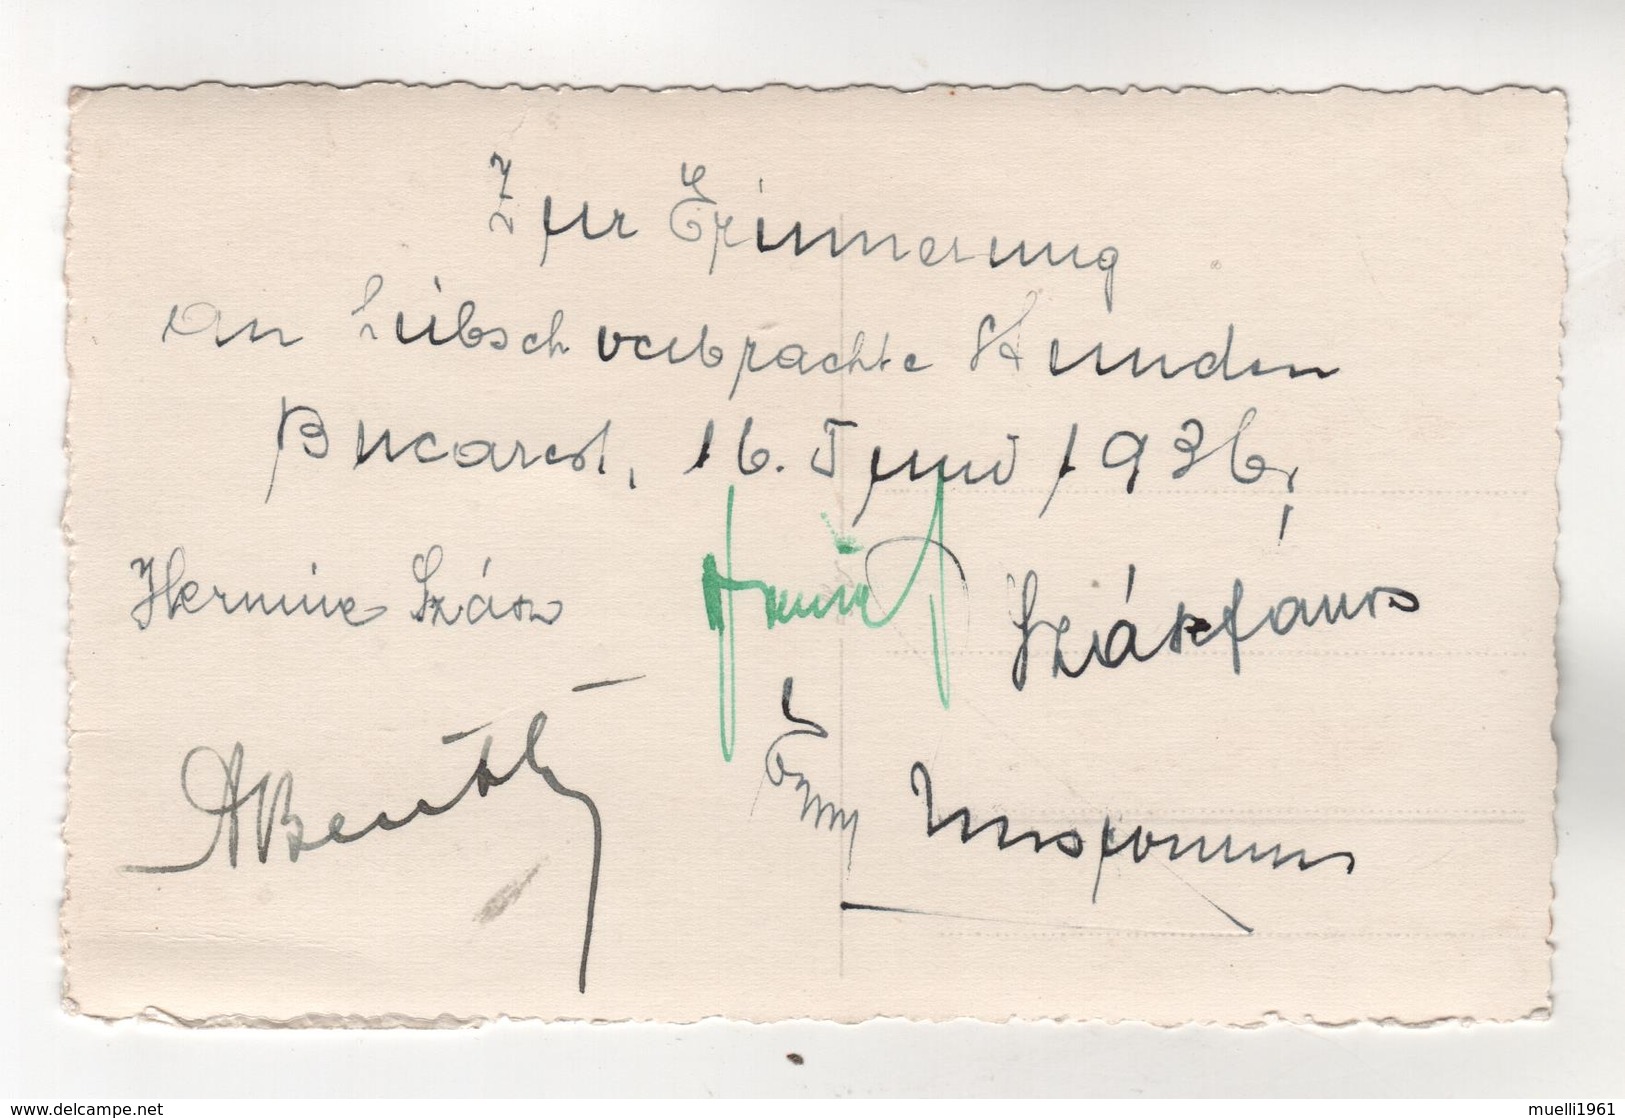 Zur Erinnerung
an hübsch verbrachte Stunden
Bucarest, 16. Juni 1936,
Hermine Szász
Szász János
www.delcampe.net
muelli1961